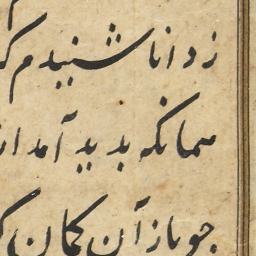 ز دانا شنیدم ک
همانکه بدید آمد از
چو باز آن کمان ک